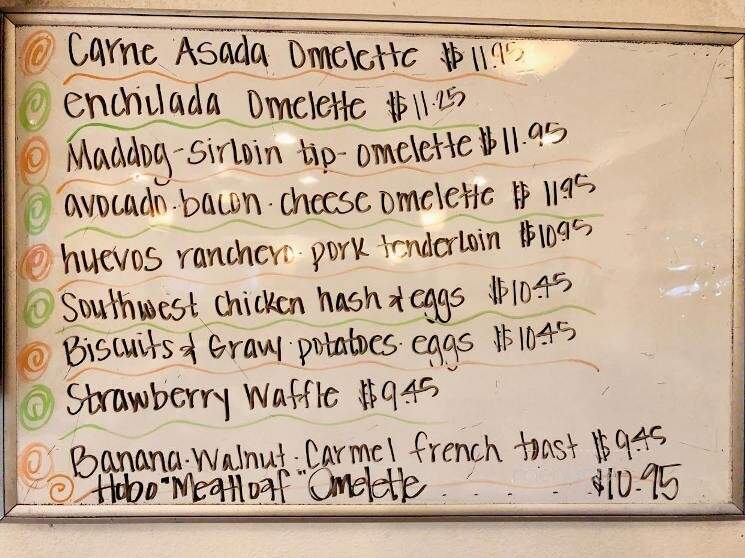 Carne Asada Omelette $11.95
enchilada Omelette $11.25
Maddog-Sirloin tip-omelette $11.95
avocado·bacon·cheese omelette $11.95
huevos ranchero·pork tenderloin $10.95
Southwest chicken hash & eggs $10.45
Biscuits & Gravy·potatoes·eggs $10.45
Strawberry Waffle $9.45
Banana·Walnut·Carmel french toast $9.45
Hobo "Meatloaf" Omelette . . . . . $10.95